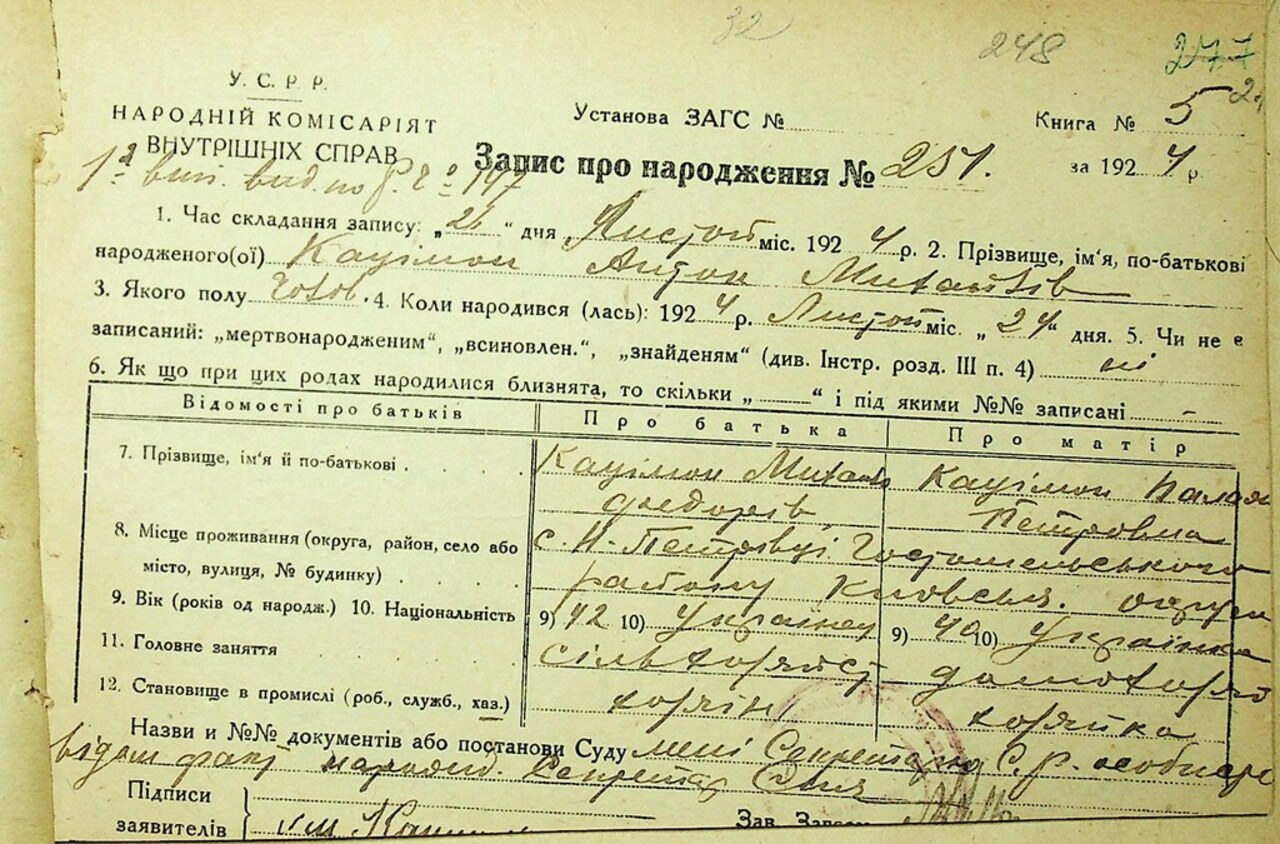 32
248
277
У. С. Р. Р.
НАРОДНІЙ КОМІСАРІЯТ
ВНУТРІШНІХ СПРАВ
Установа ЗАГС №
Книга № 5
Запис про народження № 251.
за 1924 р.
1. Час складання запису: „26“ дня Листоп міс. 1924 р. 2. Прізвище, ім'я, по-батькові
народженого(ої) Кацімон Антон Михайлів
3. Якого полу Чолов. 4. Коли народився (лась): 1924 р. Листоп міс. „24“ дня. 5. Чи не є
записаний: „мертвонародженим“, „всиновлен.“, „знайденям“ (див. Інстр. розд. III п. 4) ні
6. Як що при цих родах народилися близнята, то скільки „ “ і під якими №№ записані -
Відомості про батьків
Про батька
Про матір
7. Прізвище, ім'я й по-батькові
Кацімон Михайло
Федорів
Кацімон Палаж
Петровна
8. Місце проживання (округа, район, село або
місто, вулиця, № будинку)
с. Н-Петрівці Гостомельського
району Київськ. округи
9. Вік (років од народж.) 10. Національність
9) 42 10) Українец
9) 40 10) Українка
11. Головне заняття
сільхозяйст
домохозяй
12. Становище в промислі (роб., служб., хаз.)
хозяін
хозяйка
Назви и №№ документів або постанови Суду мені Секретарю С. Р. особисто
відом факт народж. Секретар
Підписи
заявителів
Зав. Запсом